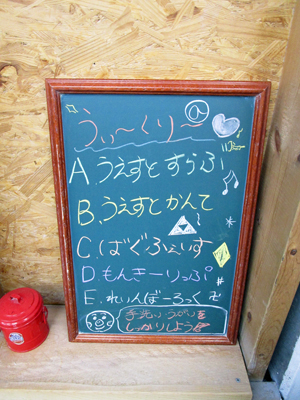 うぃ〜くり〜 @
A. うえすと すらぶ
B. うえすと かんて
C. ばぐふぇいす
D. もんきーりっぷ
E. れいんぼーろっく
手洗い うがいを
しっかりしよう